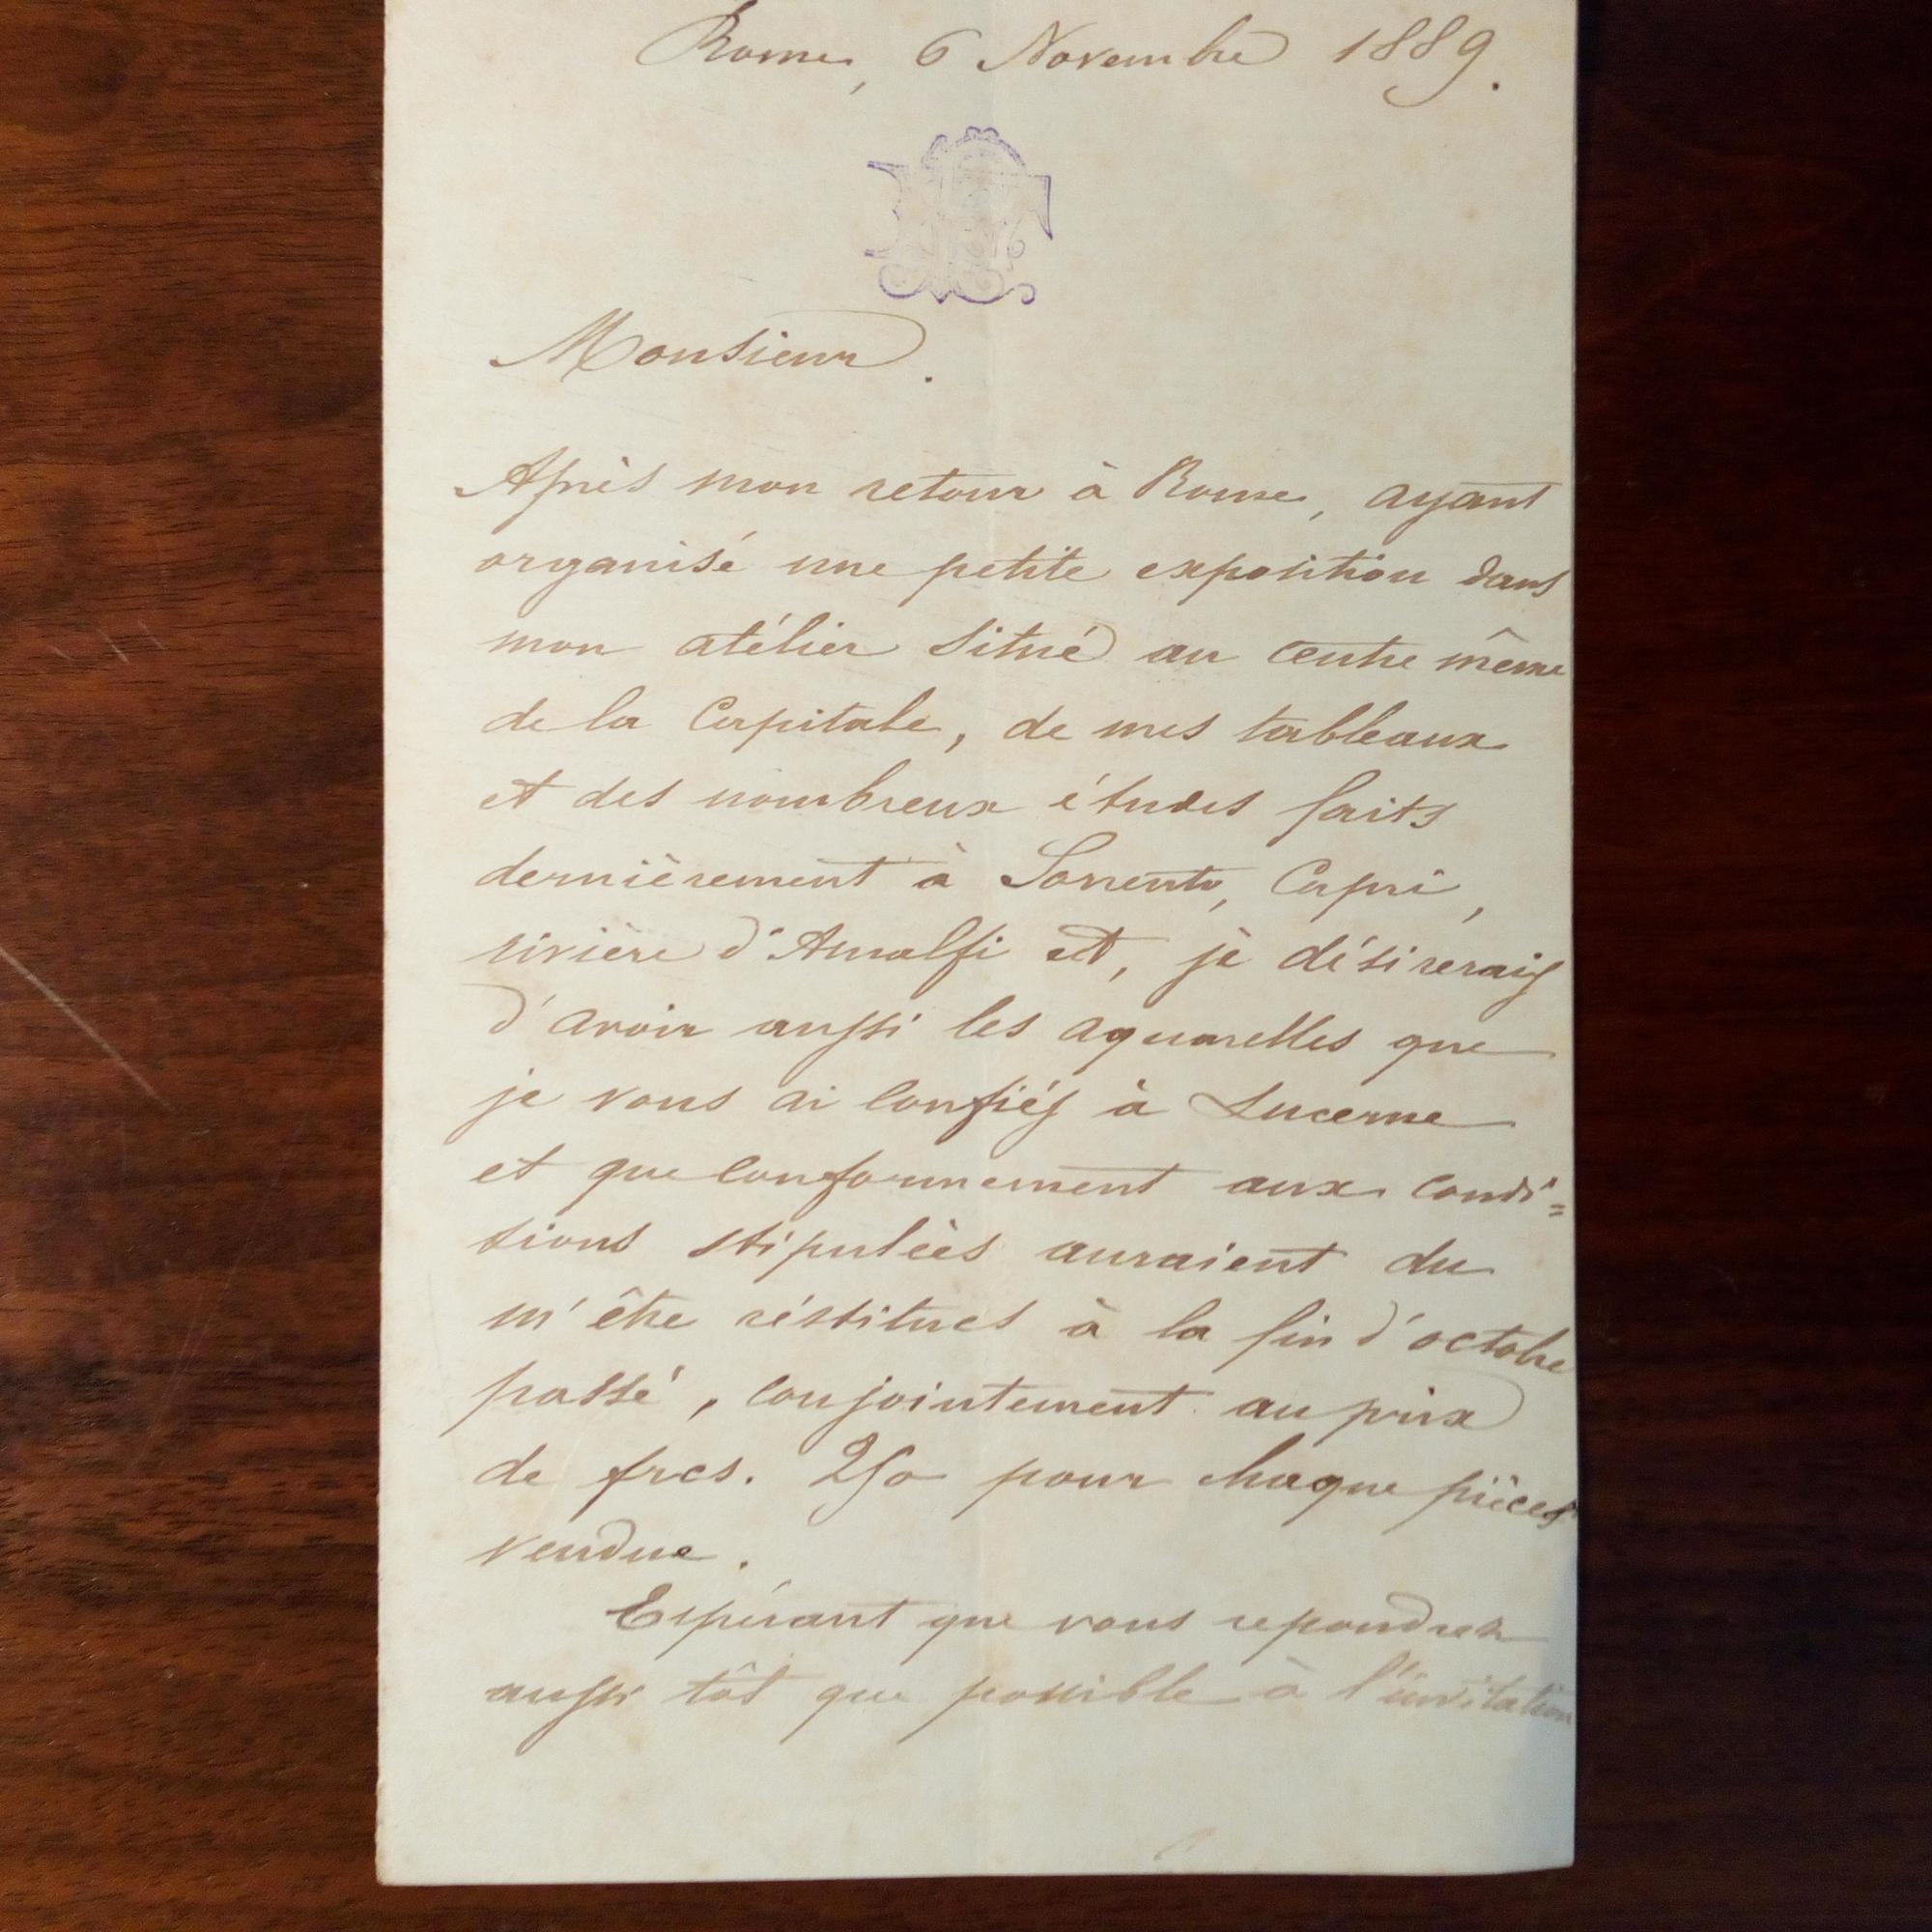 Rome, 6 Novembre 1889.
Monsieur.
Après mon retour à Rome, ayant
organisé une petite exposition dans
mon atélier situé au centre même
de la Capitale, de mes tableaux
et des nombreux études faits
dernièrement à Sorrento, Capri,
rivière d'Amalfi et, je désirerais
d'avoir aussi les aquarelles que
je vous ai confiés à Lucerne
et que conformement aux condi=
tions stipulèes auraient du
m'être réstitues à la fin d'octobre
passé, conjointement au prix
de frcs. 250 pour chaque pièces
vendue.
Espérant que vous repondrez
aussi tôt que possible à l'invitation